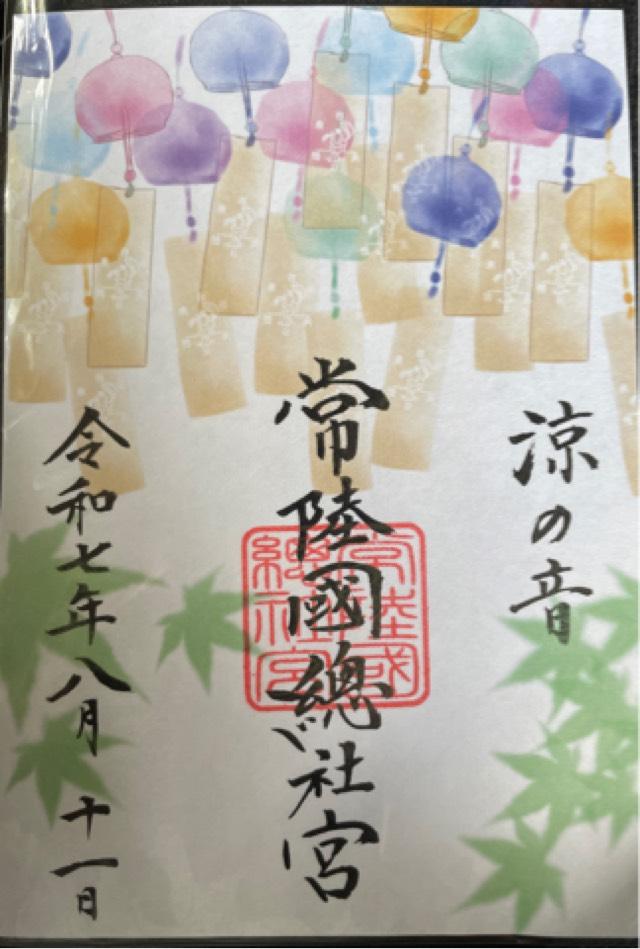 涼の音
常陸國總社宮
常陸國
總社宮
令和七年八月十一日